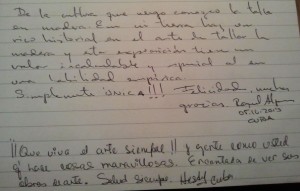 De la cultura que tengo conozco la talla
en madera. En mi tierra hay un
rico historial en el arte de tallar la
madera y esta exposición tiene un
valor incalculable y especial al en
una habilidad empírica.
Simplemente ÚNICA!!! Felicidad, muchas
gracias.
05.10.2013
CUBA
¡¡Que viva el arte siempre!! y gente como usted
q' hace cosas maravillosas. Encantada de ver sus
obras de arte. Salud siempre. Heidy Cuba